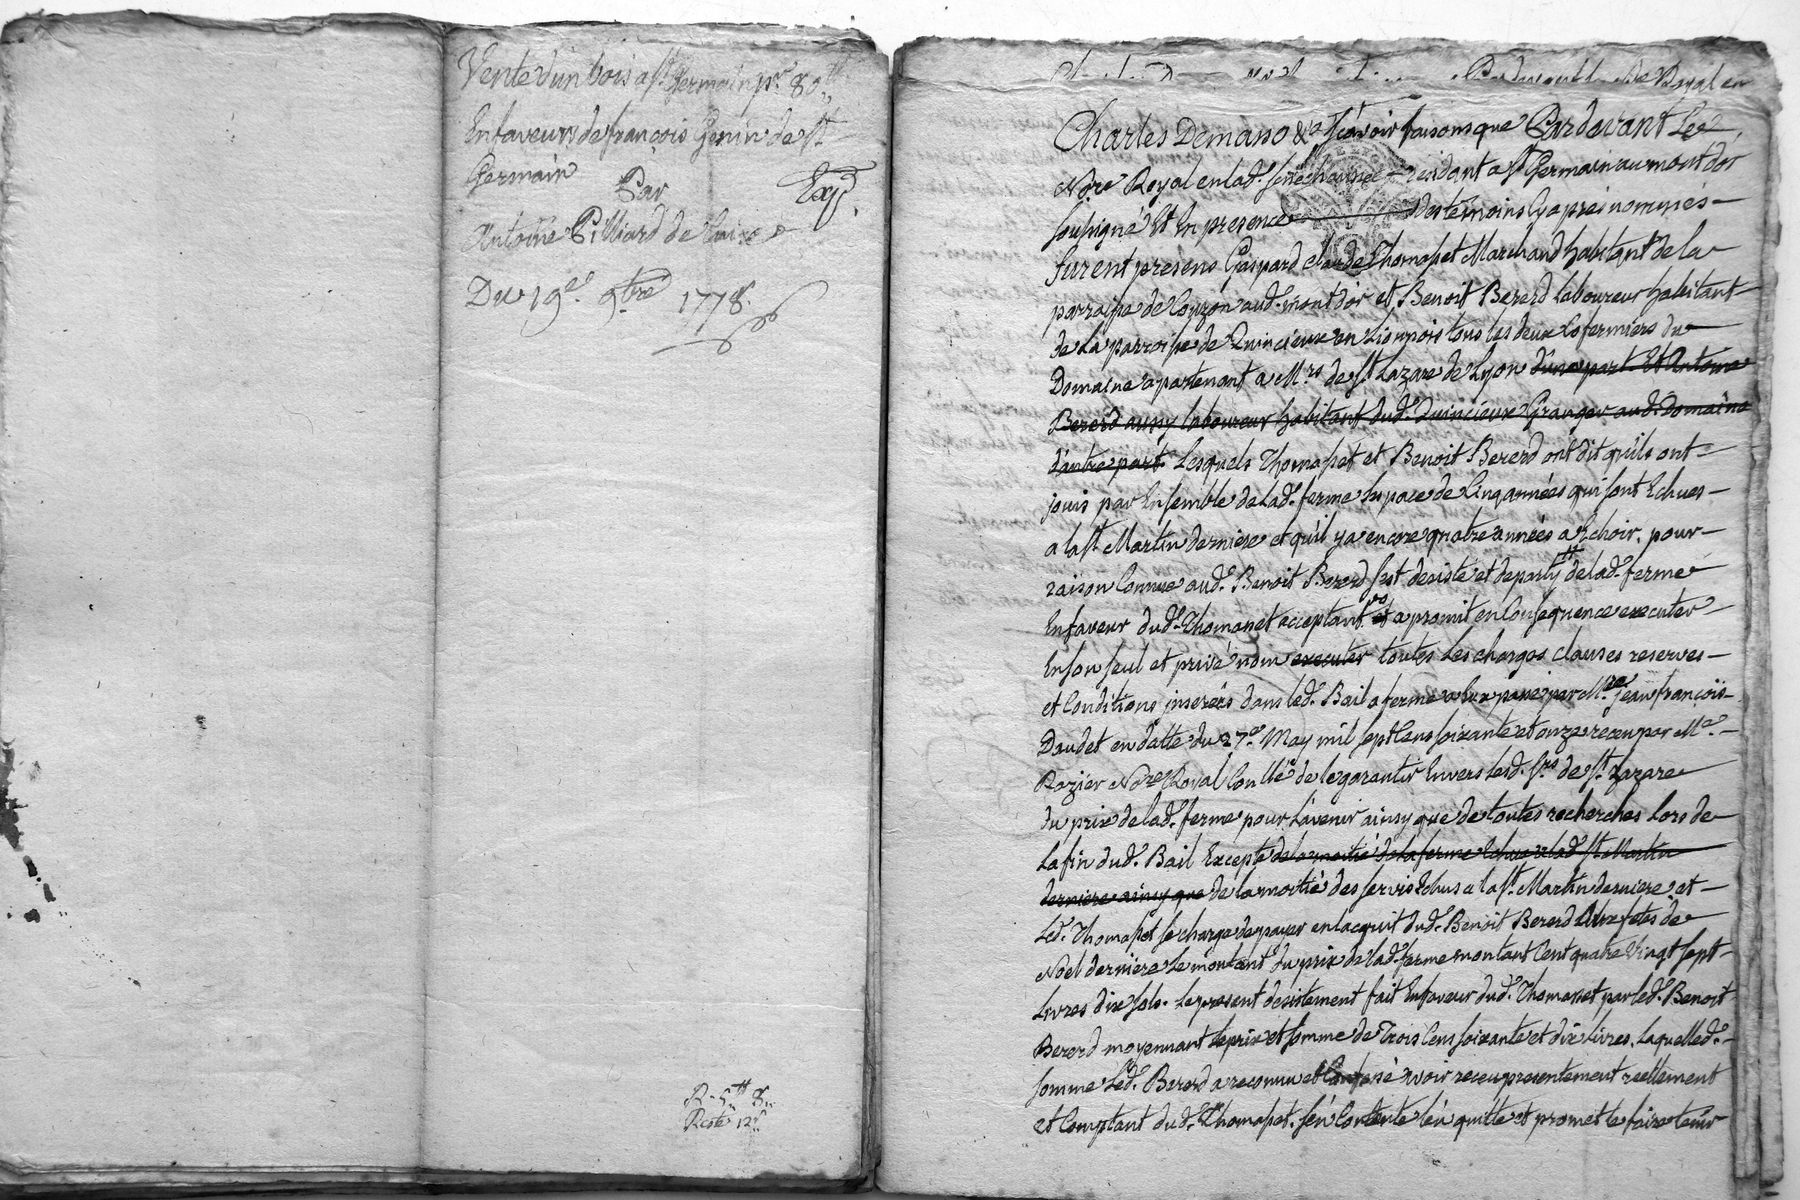 Vente d'un bois a st. Germain pr. 80tt
En faveurs de françois Genin de st
Germain
Par
Exp.
Antoine Pilliard de
Du 19e. 9bre 1778.
R. 5tt 8s
Reste 12s
De Royal en
Charles Demaso &a sçavoir faisons que Pardevant Le
Nore Royal en lad. senechaussée residant a st Germain au mont d'or
soussigné Et En presence des temoins cy apres nommés
furent presens Gaspard claude Thomasset Marchand habitant de la
parroisse de Couzon aud. mont d'or et Benoit Bererd Laboureur habitant
de La parroisse de Quincieux en Lionnois tous les deux Cofermiers du
Domaine apartenant a Mrs de st Lazare de Lyon d'une part Et Antoine
Bererd aussy laboureur habitant dud. Quincieux Granger aud. Domaine
d'autre part Lesquels Thomasset et Benoit Bererd ont dit qu'ils ont
jouis par Ensemble de Lad. ferme Espace de Cinq années qui sont Echues
a la st Martin derniere et qu'il y a encore quatre années a Echoir, pour
raison Connue aud. Benoit Bererd s'est desisté et departy de lad. ferme
En faveur dud. Thomasset acceptant et a promit en Consequence executer
En son seul et privé nom executer toutes Les charges clauses reserves
et Conditions inserées dans led. Bail a ferme a Eux passé par Mre jean françois
Daudet en datte du 27e. May mil sept Cens soixante et onze receu par Me.
Rozier Nore Royal de le garantir Envers Lesd. srs de st. Lazare
du prix de lad. ferme pour L'avenir ainsy que de toutes recherches Lors de
La fin dud. Bail Excepté de la moitié de La ferme Echue a lad st Martin
derniere ainsy que de la moitié des servis Echus a la st. Martin derniere et
Led. Thomasset se charge de payer en lacquit dud. Benoit Bererd aux fetes de
Noel derniere Le montant du prix de lad. ferme montant Cent quatre Vingt sept
Livres dix sols. Le present desistement fait En faveur dud. Thomasset par led. Benoit
Bererd moyennant le prix et somme de Trois Cens soixante et dix Livres, Laquelle d.
somme Led. Bererd a reconnu et Confessé avoir receu presentement reellement
et Comptant dud. Thomasset. s'en Contente l'en quitte et promet le faire tenir